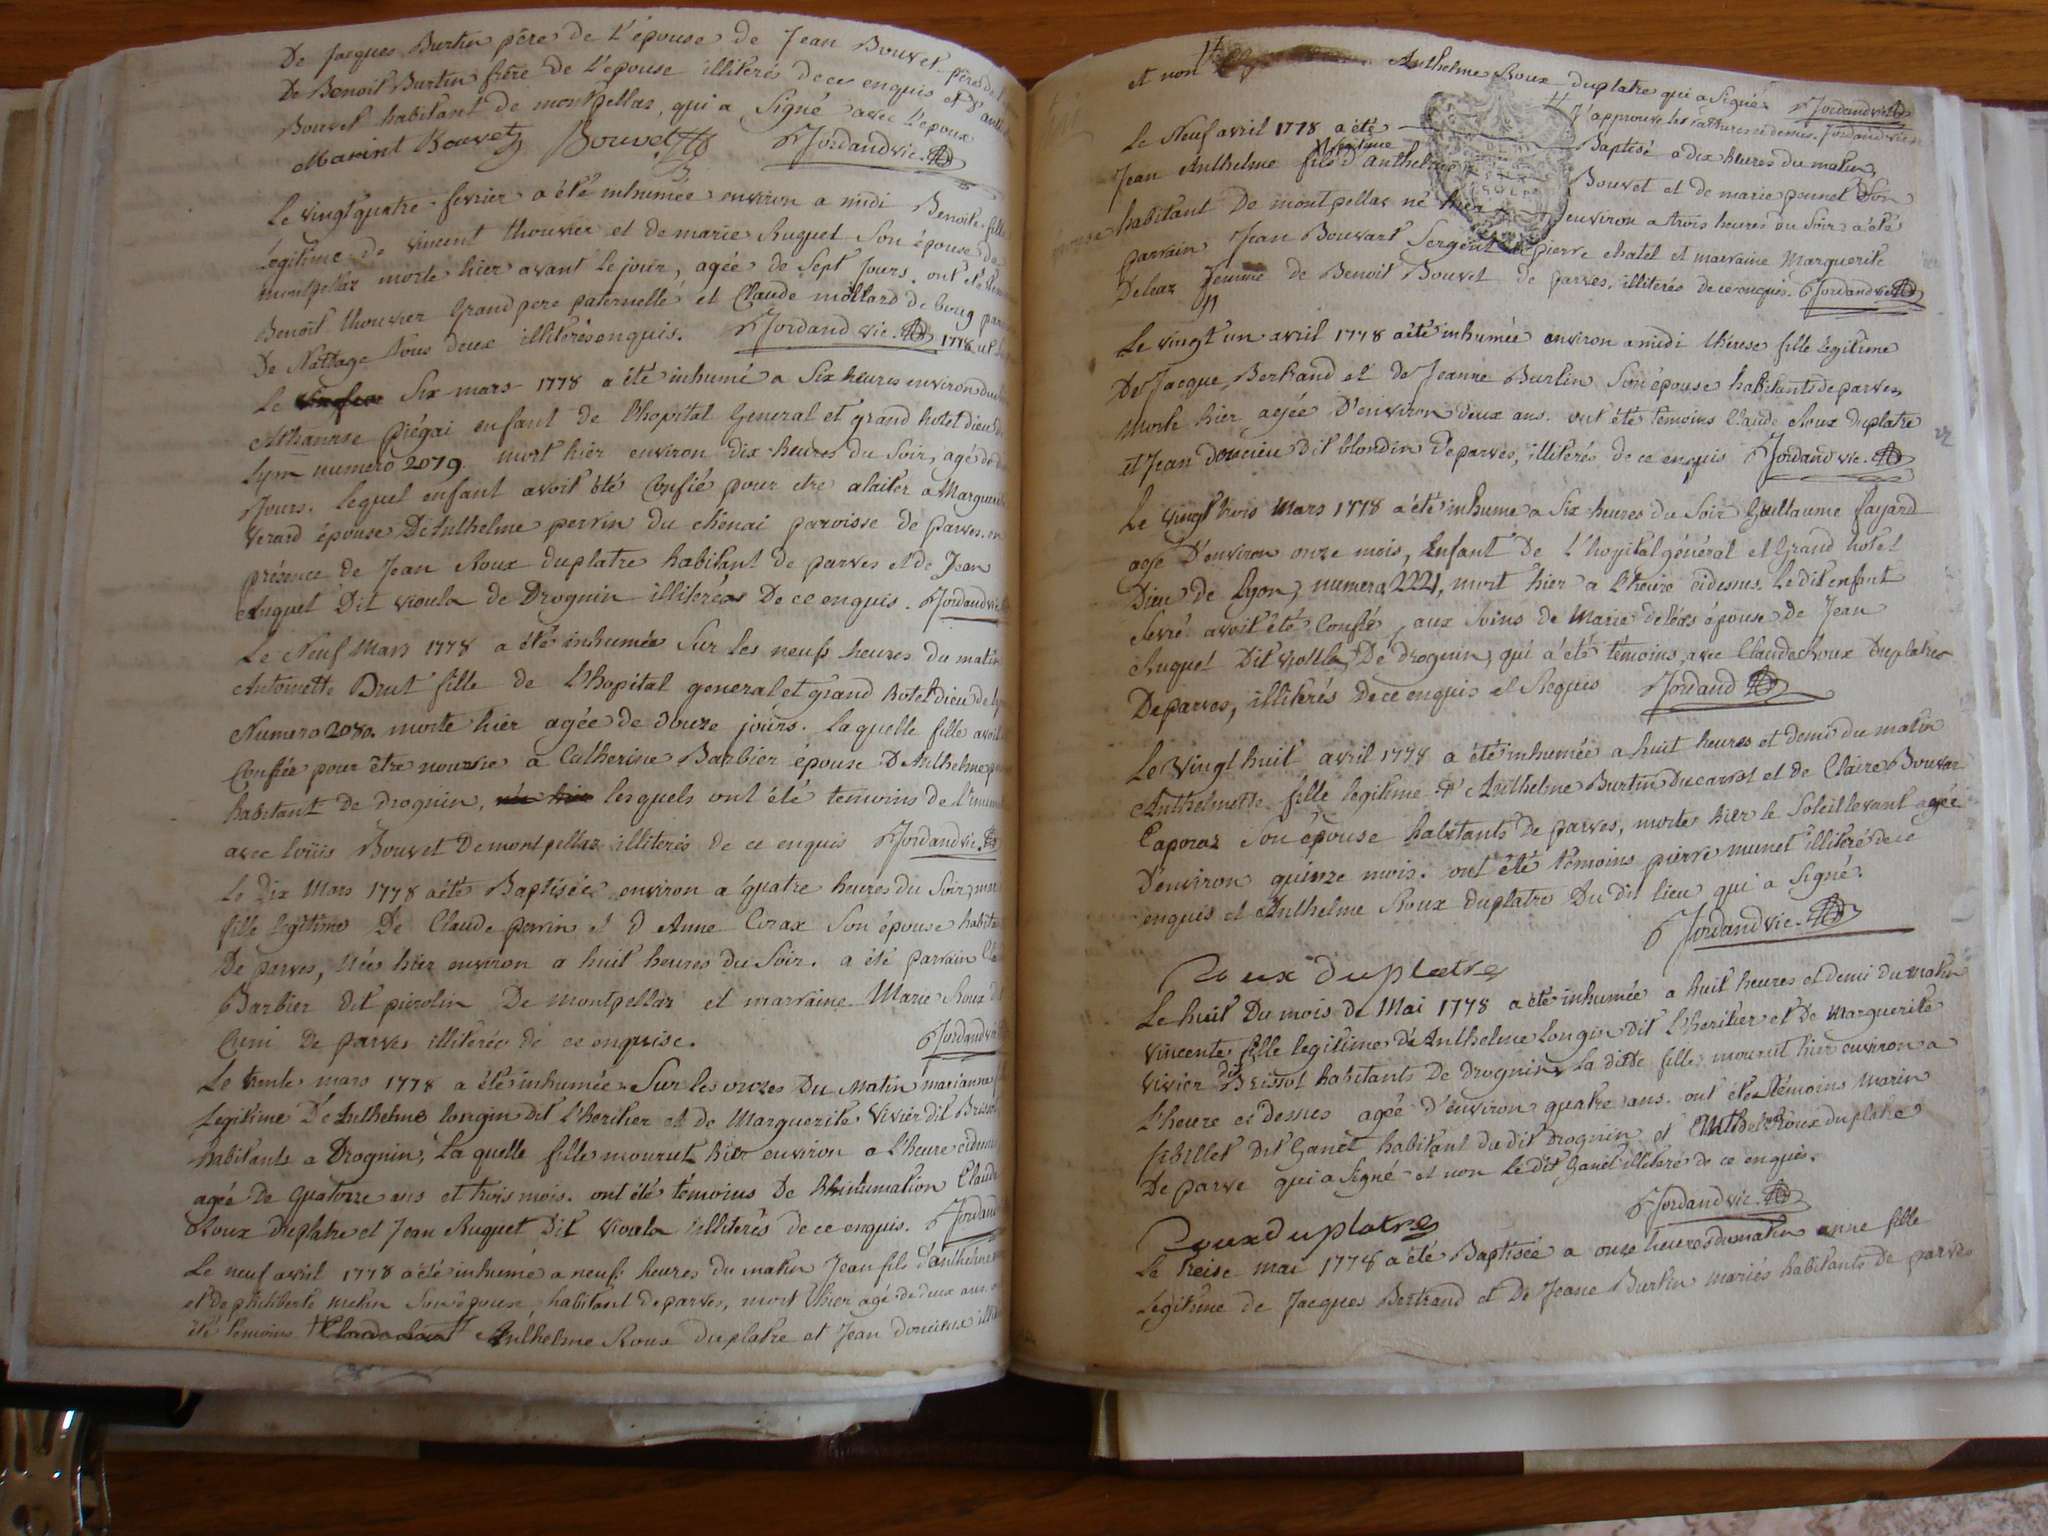 De Jacques Burtin père de L'épouse de Jean Bouvet père de
De Benoit Burtin frère de L'épouse illiterés de ce enquis et d'
Bouvet habitant de montpellaz, qui a Signé avec L'epoux
Marint Bouvet Bouvet Jordand vic.
Le vingt quatre fevrier a été inhumée environ a midi Benoite fille
Légitime de vincent thouvier et de marie Ruguet Son épouse de
montpellaz morte hier avant le jour, agée de Sept Jours. ont été
Benoit thouvier Grand pere paternelle et Claude mollard de
De Nattage tous deux illiterés enquis. Jordand vic. 1778
Le Six mars 1778 a été inhumé a Six heures environ du
Athanase prégai enfant de l'hopital General et grand hotel dieu de
Lyon numero 2079. mort hier environ dix heures du Soir, agé de
Jours. lequel enfant avoit été Confié pour etre alaiter a Marguerite
Verard épouse D'Anthelme perrin du chênai paroisse de parves. en
présence de Jean Roux duplatre habitant de parves et de Jean
Ruguet Dit vioula de Drognin illiterés De ce enquis. Jordand vic
Le Neuf Mars 1778 a été inhumée Sur les neufs heures du matin
Antoinette Brut fille de L'hopital general et grand hotel dieu de
Numero 2080. morte hier agée de douze jours. laquelle fille avoit
Confiée pour être nourrie a Catherine Barbier épouse D'Anthelme
habitant de drognin, lesquels ont été temoins de l'inhum
avec louis Bouvet De montpellaz illiterés de ce enquis Jordand vic.
Le Dix Mars 1778 a été Baptisée environ a quatre heures du Soir,
fille legitime De Claude perrin et d'Anne Corax Son épouse habita
De parves, née hier environ a huit heures du Soir. a été parrain
Barbier dit pierolin De montpellaz et marraine Marie Roux
Cuni De parves illiterés de ce enquise. Jordand vic
Le trente mars 1778 a été inhumée Sur les onzes Du Matin marianne
Legitime D'Anthelme longin dit L'heritier et de Marguerite Vivier dit Brissot
habitants a Drognin, la quelle fille mourut hier environ a l'heure cidessus
agée de quatorze ans et trois mois. ont été temoins De l'hinhumation Claude
Roux duplatre et Jean Ruguet Dit vioula illiterés de ce enquis. Jordand
Le neuf avril 1778 a été inhumé a neufs heures du matin Jean fils d'anthelme
et de philiberte Son épouse, habitant de parves, mort hier agé de deux ans.
été temoins Claude Anthelme Roux duplatre et Jean doucieux
et non Anthelme Roux duplatre qui a Signé. Jordand vic
J'approuve les ratures cidessus. Jordand vic
Le Neuf avril 1778 a été Baptisé a dix heures du matin,
legitime
Jean Anthelme fils d'anthelme Bouvet et de marie Son
épouse habitant De montpellaz né hier environ a trois heures du Soir a été
parrain Jean Bouvart Sergent pierre chatel et marraine Marguerite
Deleaz femme de Benoit Bouvet de parves, illiterés de ce enquis. Jordand vic
Le vingt un avril 1778 a été inhumée environ a midi thérese fille legitime
De Jacque Bertrand et de Jeanne Burtin Son épouse habitants de parves
morte hier agée D'environ deux ans. ont été temoins Claude Roux duplatre
et Jean doucieu dit blondin De parves, illiterés de ce enquis Jordand vic.
Le vingt trois Mars 1778 a été inhume a Six heures du Soir Guillaume fayard
age D'environ onze mois, enfant De L'hopital général et Grand hotel
Dieu de Lyon, numero 2221, mort hier a l'heure cidessus. Le dit enfant
sevré avoit été Confié aux Soins de Marie deléas épouse de Jean
Ruguet Dit vioulla, De drognin, qui a été témoins, avec Claude Roux Duplatre
De parves, illiterés de ce enquis et Requis Jordand
Le Vingt huit avril 1778 a été inhumée a huit heures et demi du matin
Anthelmette fille legitime d'Anthelme Burtin Ducarrot et de Claire Bouvar
Caporaz Son épouse habitants de parves, morte hier le Soleil levant agée
D'environ quinze mois. ont été témoins pierre munet illiteré de ce
enquis et Anthelme Roux duplatre Du dit lieu qui a Signé.
Jordand vic.
Roux duplatre
Le huit Du mois de Mai 1778 a été inhumée a huit heures et demi du matin
vincente fille legitime d'Anthelme longin dit L'heritier et De Marguerite
vivier dit Brissot habitants De drognin, la dite fille mourut hier environ a
L'heure ci dessus agée d'environ quatre ans. ont été témoins Marin
sibillet dit Ganet habitant du dit Drognin et Anthelme Roux duplatre
De parve qui a Signé et non le dit Ganet illiteré de ce enquis.
Jordand vic.
Roux duplatre
Le treise mai 1778 a été Baptisée a onze heures du matin anne fille
Legitime de Jacques Bertrand et De Jeane Burtin mariés habitants de parves